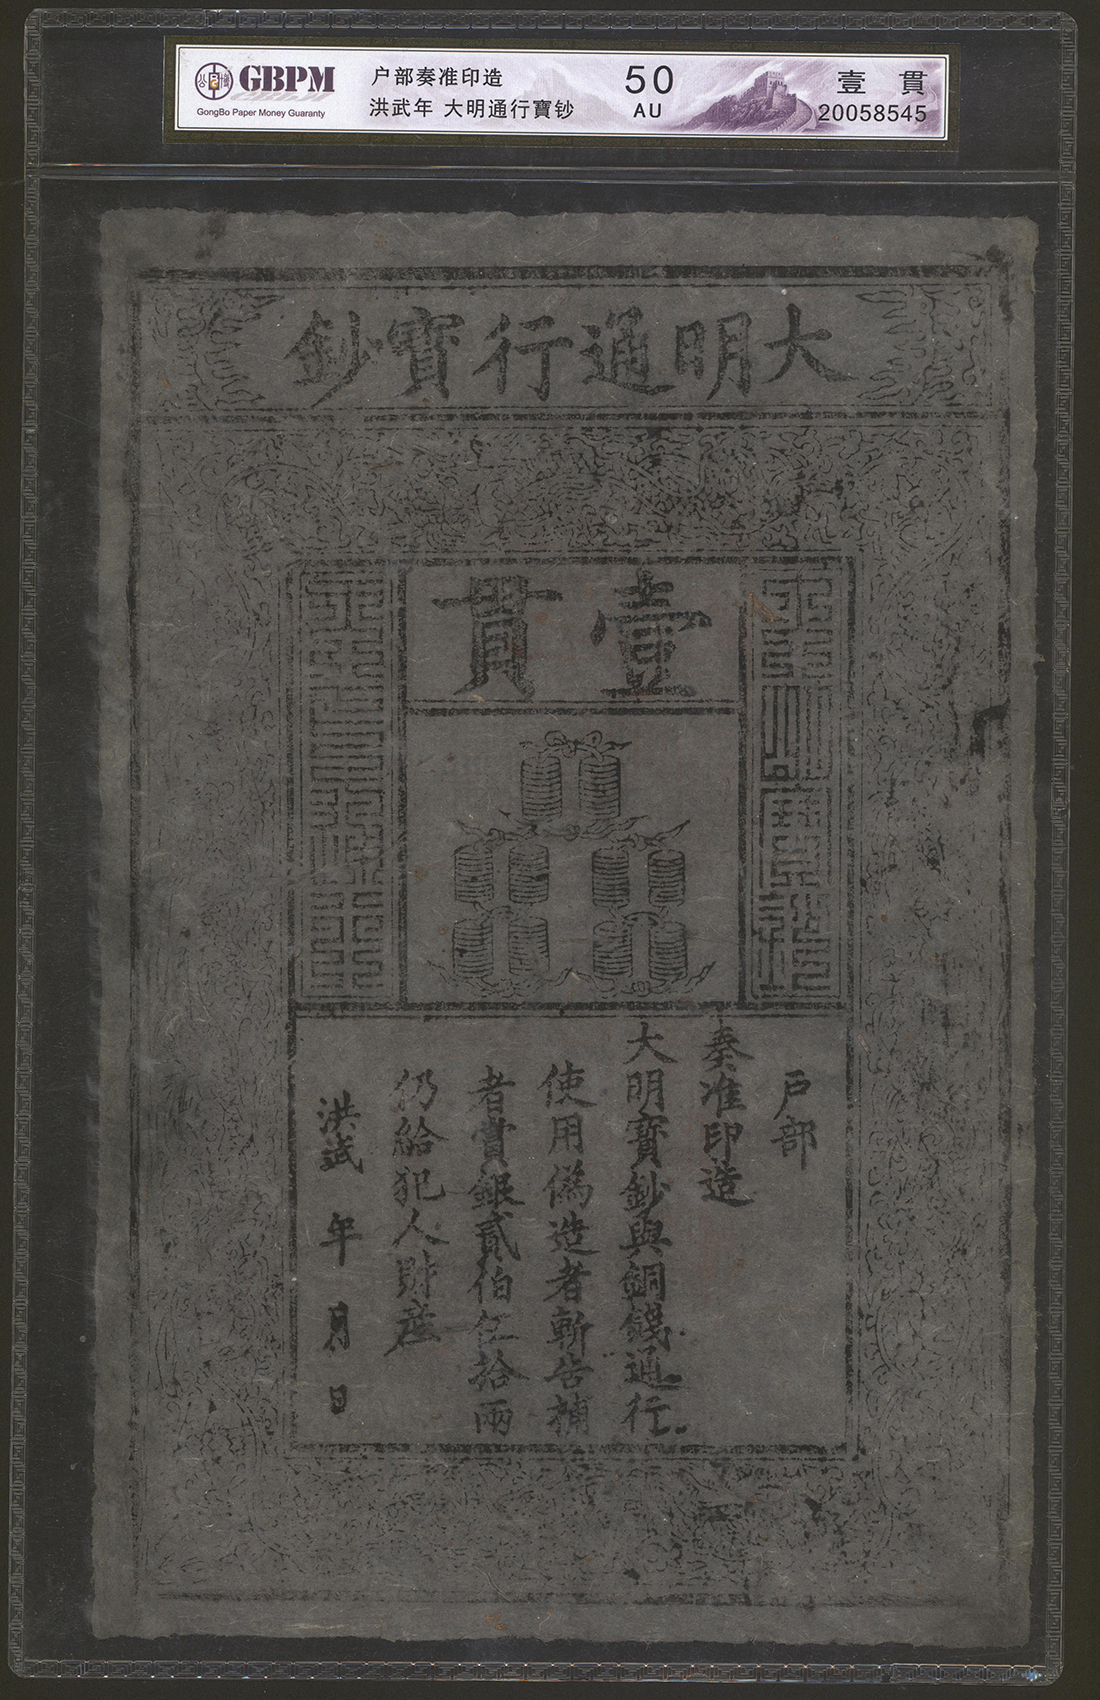 GBPM
GongBo Paper Money Guaranty
户部奏准印造
洪武年 大明通行寶鈔
50
AU
壹 貫
20058545
大明通行寶鈔
壹貫
戶部
奏准印造
大明寶鈔與銅錢通行
使用僞造者斬告捕
者賞銀貳伯伍拾兩
仍給犯人財產
洪武 年 月 日